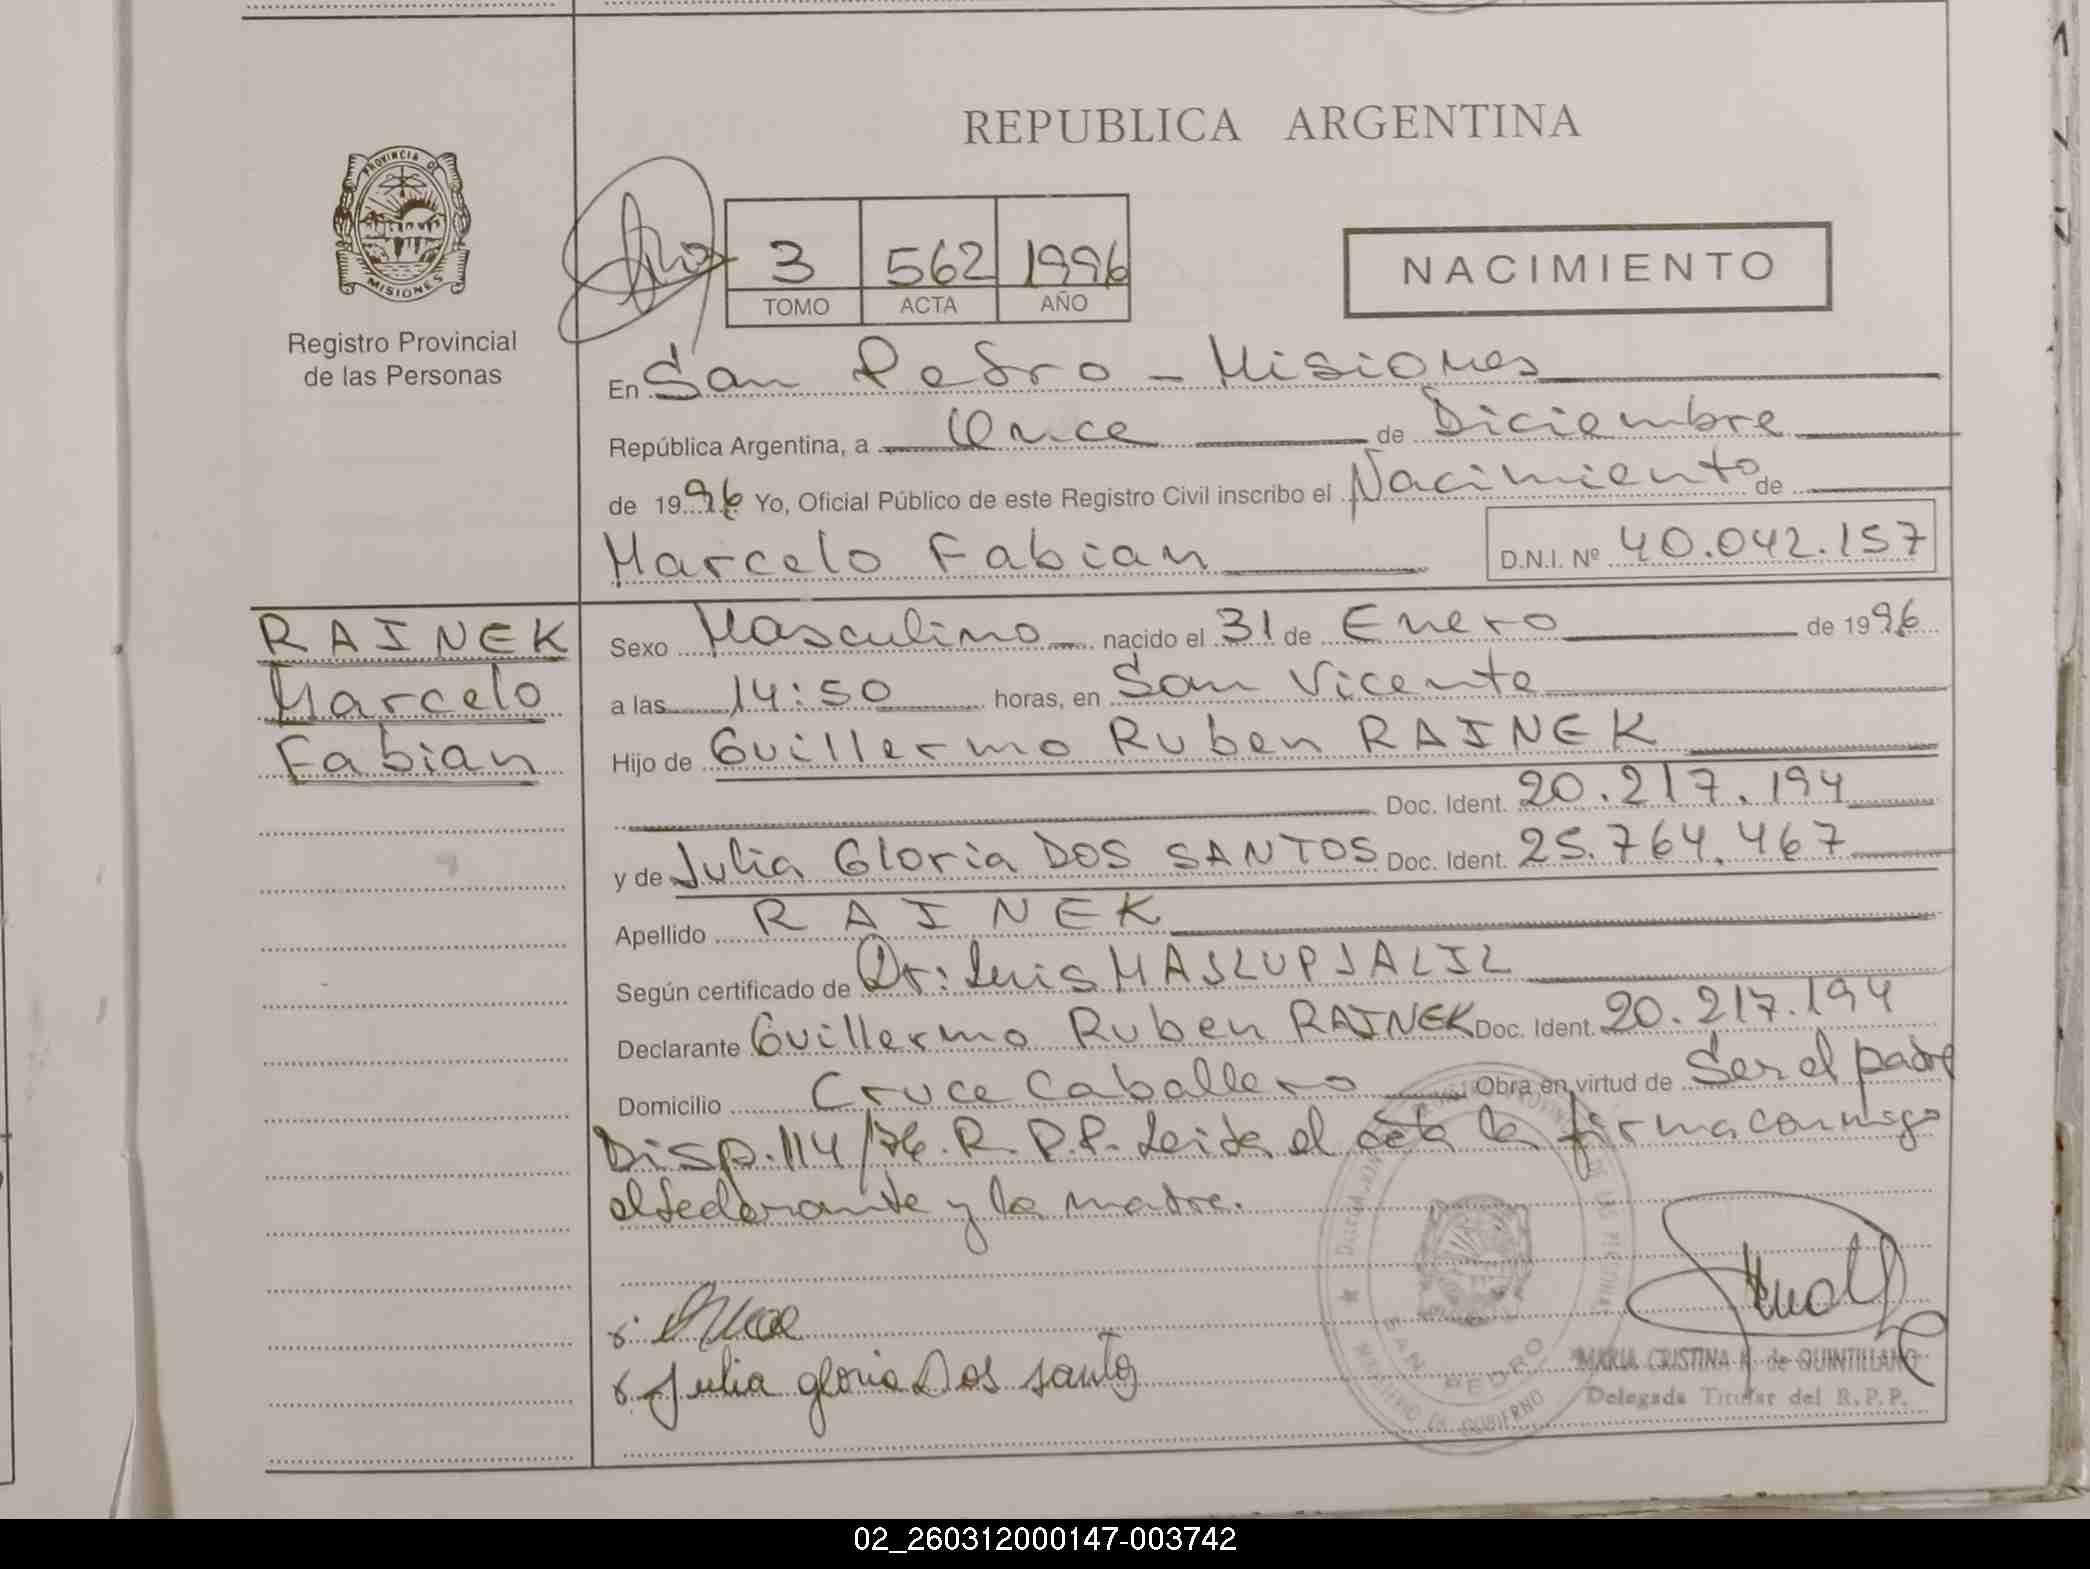 REPUBLICA ARGENTINA
PROVINCIA DE
MISIONES
Registro Provincial
de las Personas
3 562 1996
TOMO ACTA AÑO
NACIMIENTO
En San Pedro - Misiones
República Argentina, a Once de Diciembre
de 1996 Yo, Oficial Público de este Registro Civil inscribo el Nacimiento de
Marcelo Fabian D.N.I. Nº 40.042.157
RAINEK
Marcelo
Fabian
Sexo Masculino nacido el 31 de Enero de 1996
a las 14:50 horas, en San Vicente
Hijo de Guillermo Ruben RAINEK
Doc. Ident. 20.217.194
y de Julia Gloria DOS SANTOS Doc. Ident. 25.764.467
Apellido RAINEK
Según certificado de Dr: Luis MASLUPJALIL
Declarante Guillermo Ruben RAINEK Doc. Ident. 20.217.194
Domicilio Cruce Caballero Obra en virtud de Ser el padre
Disp. 114/76. R.P.P. Leida el acta la firma conmigo
el declarante y la madre.
Julia gloria Dos santos
SAN PEDRO
MINISTERIO DE GOBIERNO
MARIA CRISTINA de QUINTILLANO
Delegada Titular del R.P.P.
02_260312000147-003742